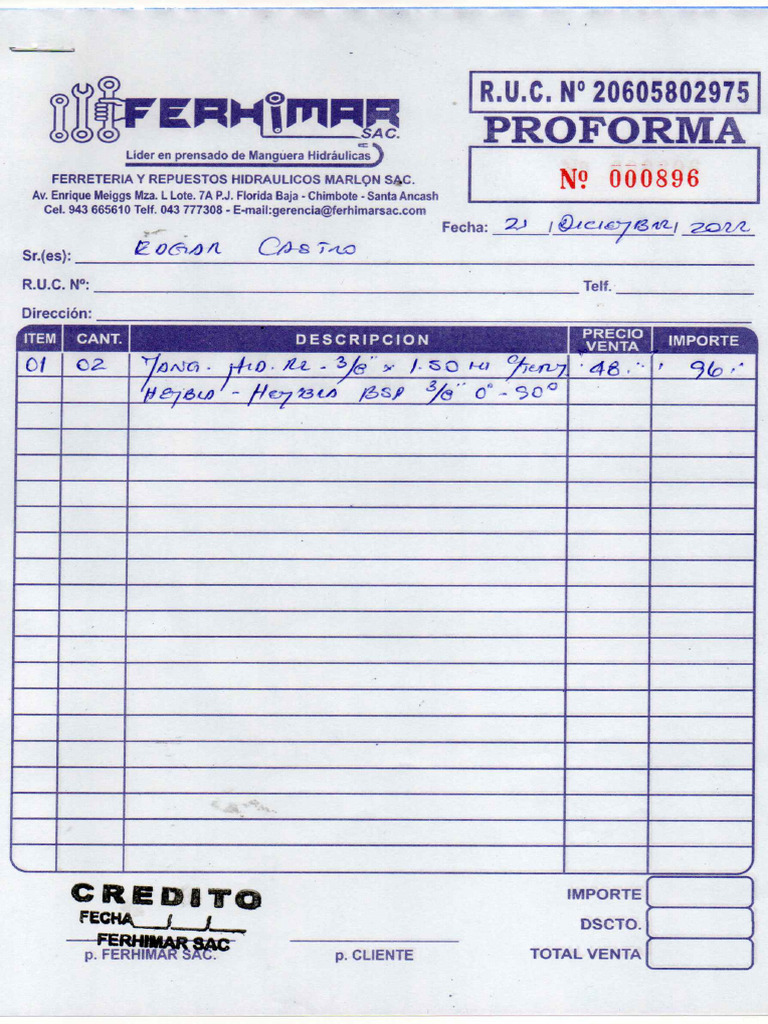 FERHIMAR
SAC.
Lider en prensado de Manguera Hidráulicas
FERRETERIA Y REPUESTOS HIDRAULICOS MARLON SAC.
Av. Enrique Meiggs Mza. L Lote. 7A P.J. Florida Baja - Chimbote - Santa Ancash
Cel. 943 665610 Telf. 043 777308 - E-mail:gerencia@ferhimarsac.com
R.U.C. Nº 20605802975
PROFORMA
Nº 000896
Fecha: 21 / Diciembre / 2022
Sr.(es): EDGAR CASTRO
R.U.C. Nº: Telf.
Dirección:
ITEM CANT. DESCRIPCION PRECIO VENTA IMPORTE
01 02 Mang. Hid. R2 - 3/8" x 1.50 48.- 96.-
Hembra - Hembra BSP 3/8" 0° - 90°
CREDITO
FECHA / /
FERHIMAR SAC
p. FERHIMAR SAC.
p. CLIENTE
IMPORTE
DSCTO.
TOTAL VENTA